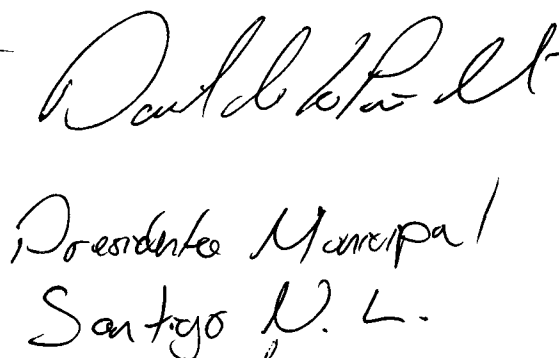 David de la Peña M
Presidente Municipal
Santiago N. L.